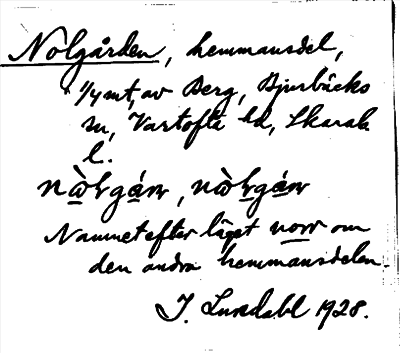 Nolgården, hemmansdel,
1/4 mt, av Berg, Bjurbäcks
sn, Vartofta hd, Skarab.
l.
Namnet efter läget norr om
den andra hemmansdelen.
J. Lundahl 1928.